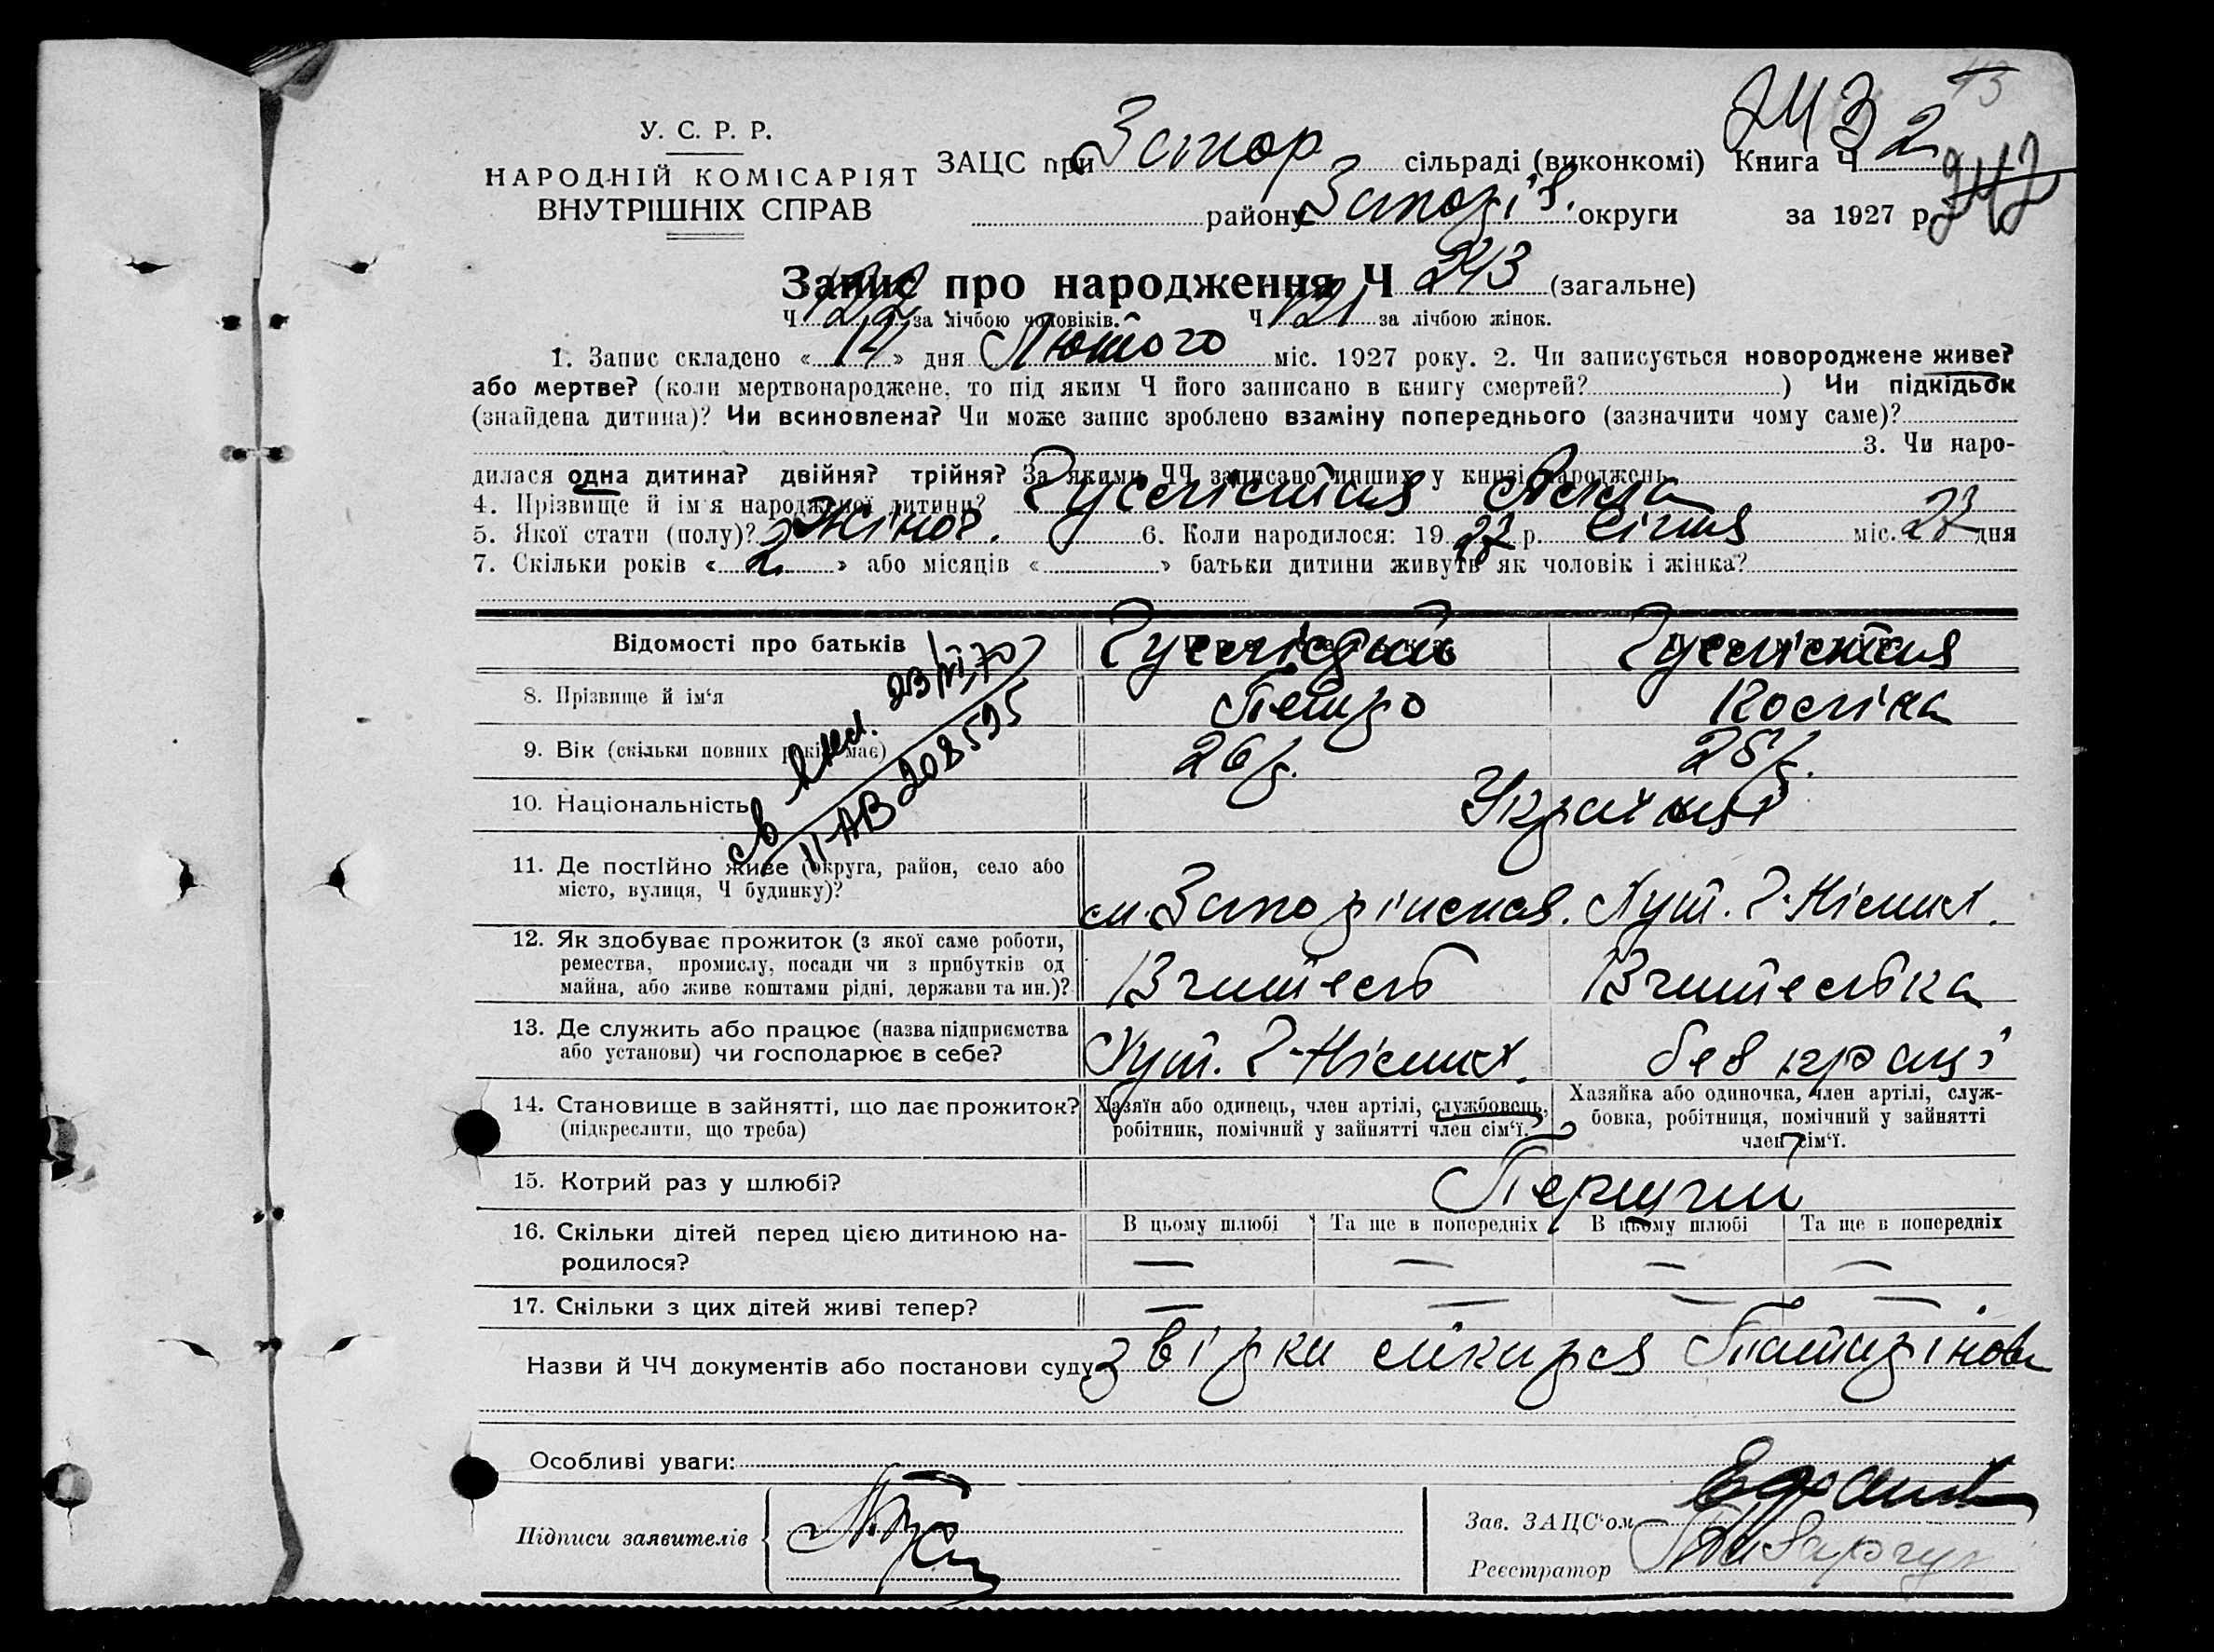 13
243
У. С. Р. Р.
НАРОДНІЙ КОМІСАРІЯТ
ВНУТРІШНІХ СПРАВ
ЗАЦС при Запор сільраді (виконкомі) Книга Ч 2
району Запоріз. округи за 1927 р.
242
Запис про народження Ч 243 (загальне)
Ч 122 за лічбою чоловіків. Ч 121 за лічбою жінок.
1. Запис складено « 14 » дня Лютого міс. 1927 року. 2. Чи записується новороджене живе?
або мертве? (коли мертвонароджене, то під яким Ч його записано в книгу смертей? ) Чи підкідьок
(знайдена дитина)? Чи всиновлена? Чи може запис зроблено взаміну попереднього (зазначити чому саме)?
3. Чи наро-
дилася одна дитина? двійня? трійня? За якими ЧЧ записано инших у книзі народжень
4. Прізвище й ім'я народженої дитини?
5. Якої стати (полу)? Жіноч. 6. Коли народилося: 19 27 р. Січня міс. 23 дня
7. Скільки років « 2 » або місяців « » батьки дитини живуть як чоловік і жінка?
Відомості про батьків
8. Прізвище й ім'я Петро
9. Вік (скільки повних років має) 26 р. 25 р.
10. Національність Українці
23/VI 70
II-АВ 208595
11. Де постійно живе (округа, район, село або
місто, вулиця, Ч будинку)?
м. Запоріжжя. Хут.
12. Як здобуває прожиток (з якої саме роботи,
ремества, промислу, посади чи з прибутків од
майна, або живе коштами рідні, держави та ин.)?
Вчитель Вчителька
13. Де служить або працює (назва підприємства
або установи) чи господарює в себе?
Хут. без праці
14. Становище в зайнятті, що дає прожиток?
(підкреслити, що треба)
Хазяїн або одинець, член артілі, службовець,
робітник, помічний у зайнятті член сім'ї.
Хазяйка або одиночка, член артілі, служ-
бовка, робітниця, помічний у зайнятті
член сім'ї.
15. Котрий раз у шлюбі? Перший
16. Скільки дітей перед цією дитиною на-
родилося?
В цьому шлюбі Та ще в попередніх В цьому шлюбі Та ще в попередніх
— — — —
17. Скільки з цих дітей живі тепер? — — — —
Назви й ЧЧ документів або постанови суду
Особливі уваги:
Підписи заявителів
Зав. ЗАЦС'ом
Реєстратор